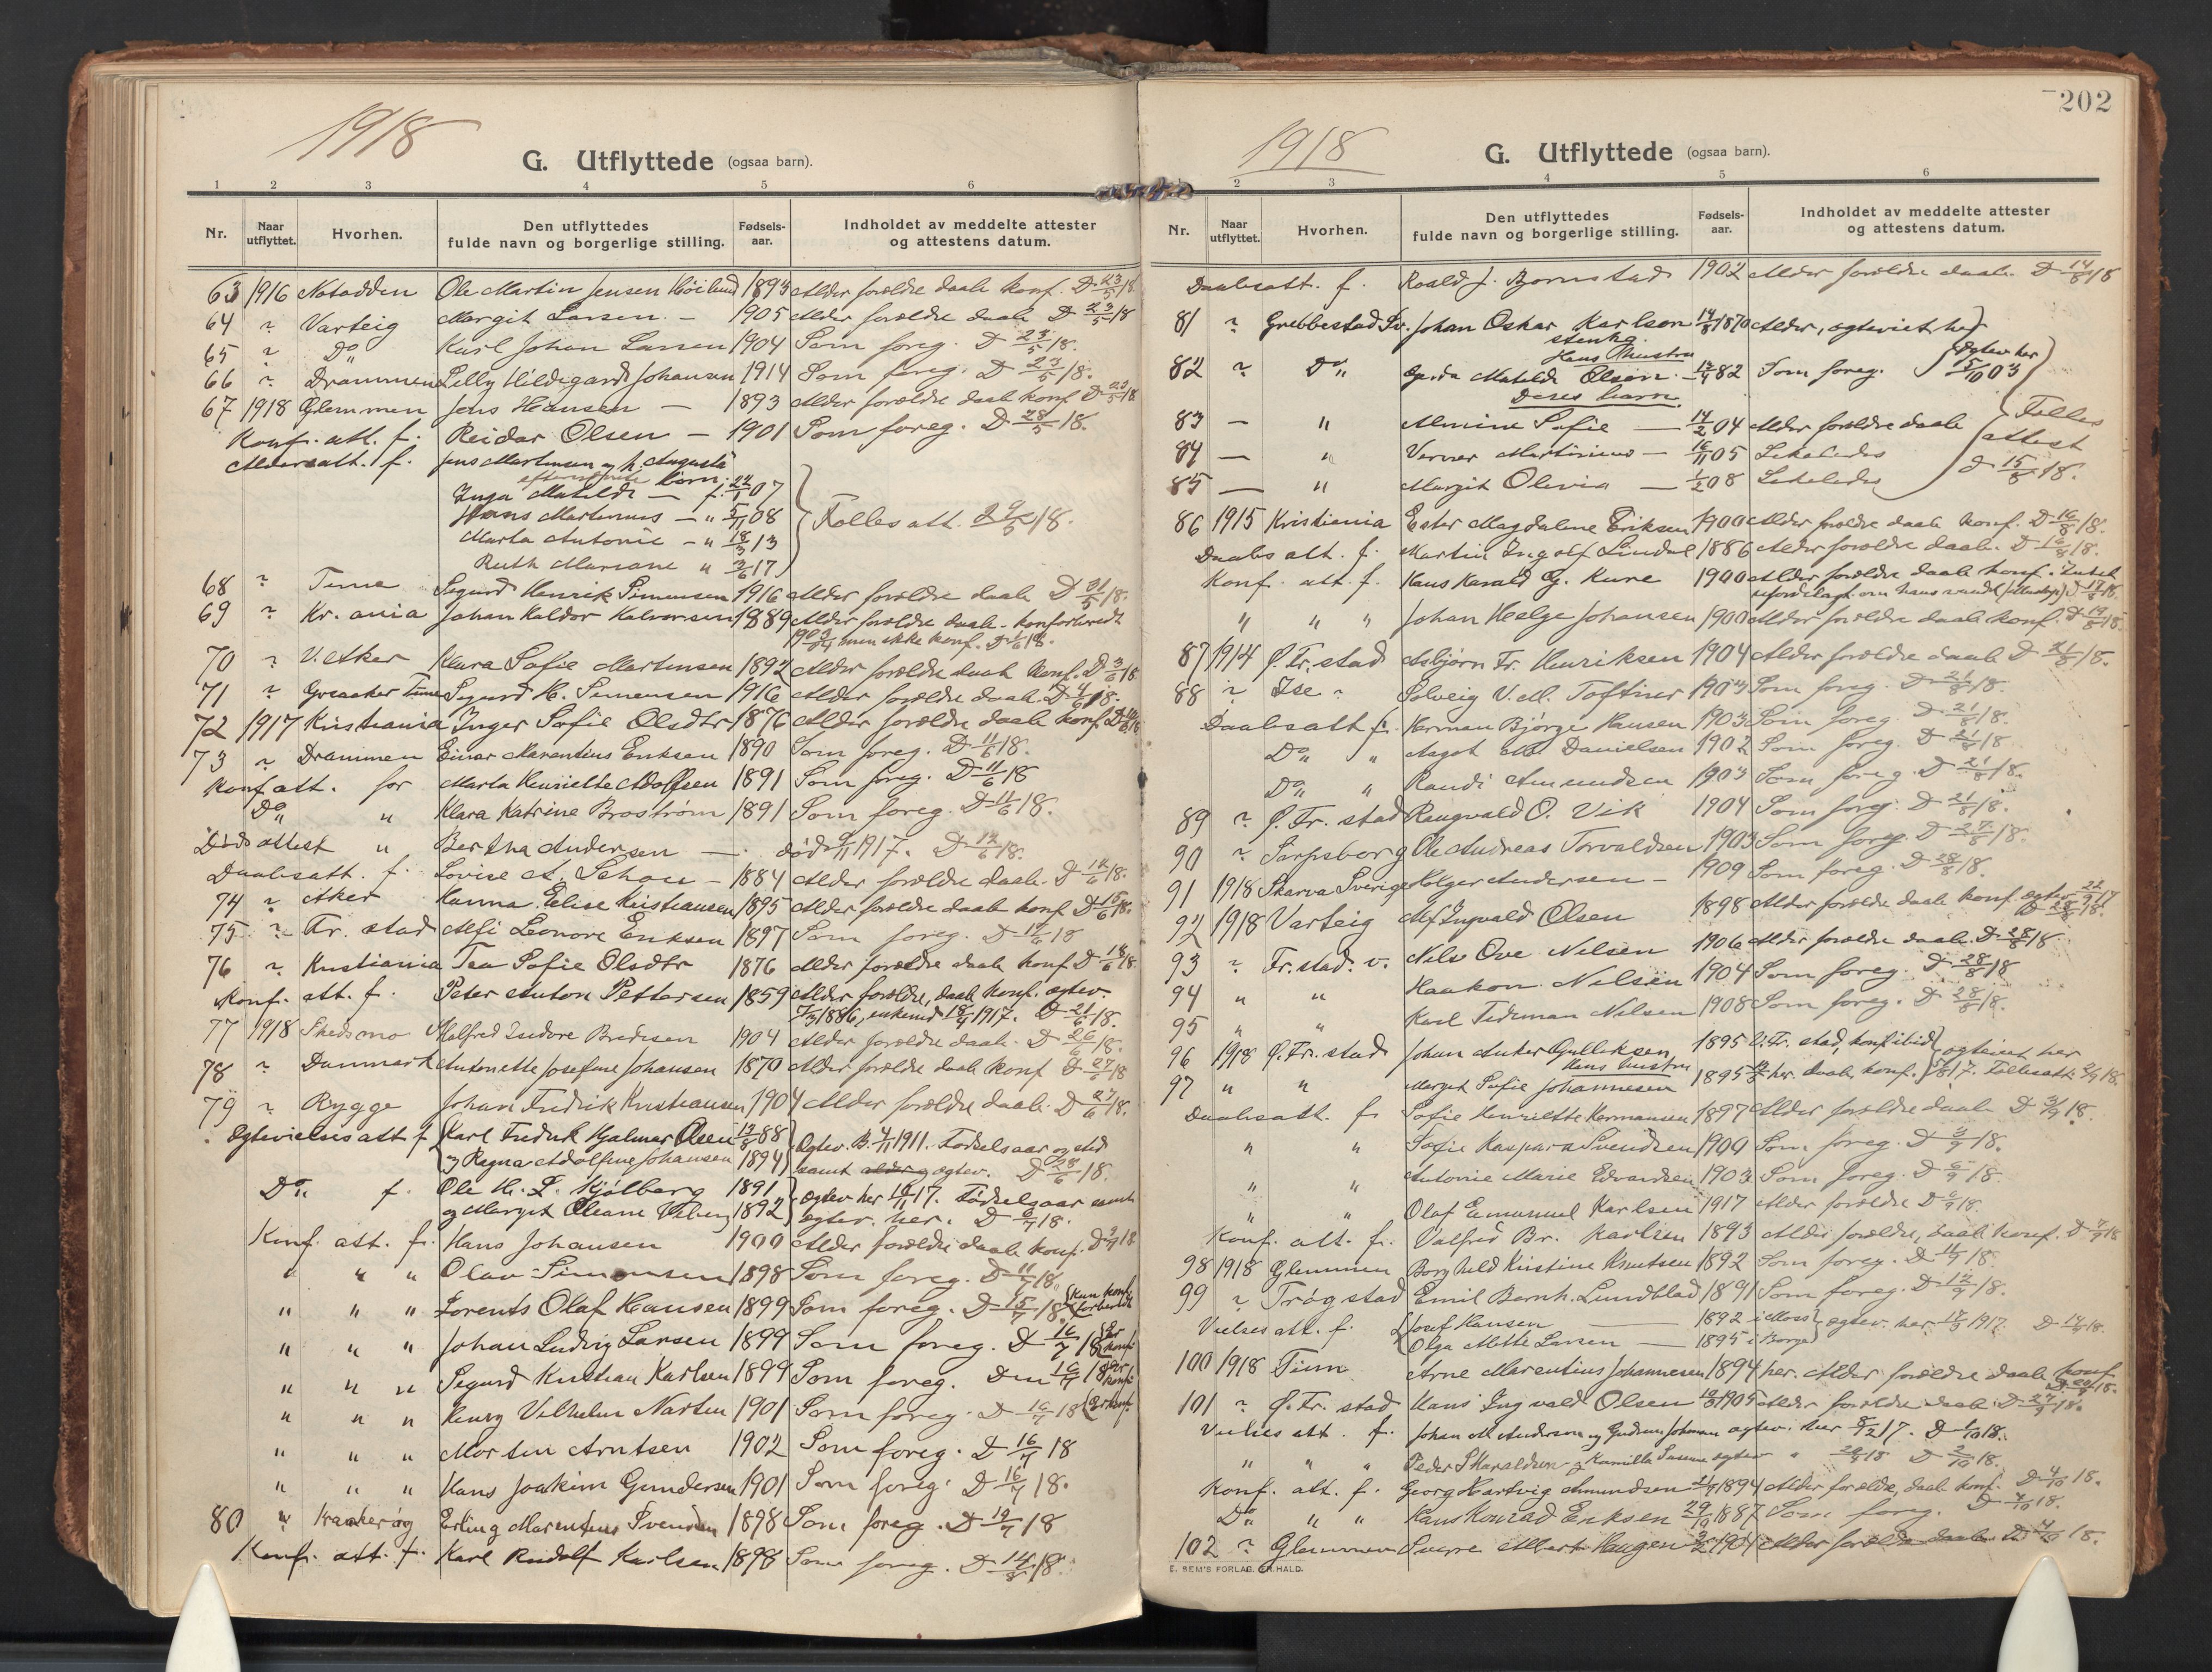 1918
G. Utflyttede (ogsaa barn).
1 2 3 4 5 6
Nr. Naar utflyttet. Hvorhen. Den utflyttedes fulde navn og borgerlige stilling. Fødsels-aar. Indholdet av meddelte attester og attestens datum.
63 1916 Notodden Ole Martin Jensen Høilund 1893 Alder forældre daab konf. D 23/5 18
64 " Varteig Margit Larsen — 1905 Alder forældre daab D 23/5 18
65 " Do Karl Johan Larsen 1904 Som foreg. D 23/5 18.
66 " Drammen Lilly Hildegard Johansen 1914 Som foreg. D 23/5 18.
67 1918 Glemmen Jens Hansen — 1893 Alder forældre daab konf. D 23/5 18
Konf. att. f. Reidar Olsen — 1901 Som foreg. D 28/5 18.
Aldersatt. f. Jens Martinsen og h. Augusta
efternevnte børn:
Inga Matilde — f. 07
Hans Martinus — " 5/11 08
Marta Antonie — " 18/3 13
Ruth Mariane " 3/6 17
Fælles att. 29/5 18.
68 " Tune Sigurd Henrik Simensen 1916 Alder forældre daab D 31/5 18.
69 " Kr.ania Johan Haldor Halvorsen 1889 Alder forældre daab - konforberedt
men ikke konf. D 1/6 18.
70 " V. Aker Klara Sofie Martinsen 1892 Alder forældre daab konf. D 3/6 18
71 " Greaaker Tune Sigurd H. Simensen 1916 Alder forældre daab. D 4/6 18.
72 1917 Kristiania Inger Sofie Olsdtr 1876 Alder forældre daab konf. D
73 " Drammen Einar Marentius Eriksen 1890 Som foreg. D 11/6 18.
Konf att. for Marta Henriette Adolfsen 1891 Som foreg. D 11/6 18
Do " Klara Katrine Brostrøm 1891 Som foreg. D 11/6 18.
Dødsattest " Bertha Andersen — død 9/11 1917. D 12/6 18.
Daabsatt. f. Lovise A. Schou — 1884 Alder forældre daab. D 12/6 18.
74 " Aker Hanna Elise Kristiansen 1895 Alder forældre daab konf D 15/6 18.
75 " Fr.stad Alfi Leonore Eriksen 1897 Som foreg. D 17/6 18
76 " Kristiania Tea Sofie Olsdtr 1876 Alder forældre daab konf D 18/6 18.
Konf. att. f. Peter Anton Pettersen 1859 Alder forældre, daab konf. egtev.
1886, enkemd 18/4 1917. D 21/6 18.
77 1918 Skedsmo Halfred Isidore Bredesen 1904 Alder forældre daab. D 26/6 18.
78 " Danmark Antonette Josefine Johansen 1870 Alder forældre daab konf D 27/6 18
79 " Rygge Johan Fredrik Kristiansen 1904 Alder forældre daab. D 27/6 18.
Egtevielses att f. Karl Fredrik Hjalmar Olsen 88
og Ragna Adolfine Johansen 1894
Egtev. B. 4/11 1911. Fødselsaar og sted
samt alder og egtev. D 28/6 18.
Do f. Ole H. L. Kjølberg 1891
og Margit Oleane 1892
egtev her 17. Fødselsaar samt
egtev. her. D 6/7 18.
Konf. att. f. Hans Johansen 1900 Alder forældre daab konf. D 9/7 18
" " " Olav Simonsen 1898 Som foreg. D 11/7 18.
" " " Lorents Olaf Hansen 1899 Som foreg. D 15/7 18. (kun konf forberedt
" " " Johan Ludvig Larsen 1899 Som foreg. D 16/7 18 (Er konf
" " " Sigurd Kristian Karlsen 1899 Som foreg. Den 16/7 18 (er konf
" " " Henry Vilhelm Narten 1901 Som foreg. D 16/7 18 (er konf.
" " " Morten Arntsen 1902 Som foreg. D 16/7 18
" " " Hans Joakim Gundersen 1901 Som foreg. D 16/7 18.
80 " Kraakerøy Erling Marentius Svendsen 1898 Som foreg. D 19/7 18
Konf. att. f. Karl Rudolf Karlsen 1898 Som foreg. D 14/8 18.
202
1918
G. Utflyttede (ogsaa barn).
2 3 4 5 6
Nr. Naar utflyttet. Hvorhen. Den utflyttedes fulde navn og borgerlige stilling. Fødsels-aar. Indholdet av meddelte attester og attestens datum.
Daabsatt. f. Roald J. Bjørnstad 1902 Alder forældre daab. D 14/8 18
81 " Grebbestad Sv. Johan Oskar Karlsen 1870 Alder, egteviet her
stenhg.
Hans Hustru
82 " Do Gerda Matilde Olsen 82 Som foreg. (Egtev her 15/10 03)
Deres barn
83 — " Almine Sofie — 14/2 04 Alder forældre daab
84 — " Verner Martinius — 16/11 05 Likeledes
85 — " Margit Olivia — 1/2 08 Likeledes
Fælles
attest
d 15/8 18.
86 1915 Kristiania Ester Magdalene Eriksen 1900 Alder forældre daab konf. D 16/8 18.
Daabs att. f. Martin Ingolf Lindal 1886 Alder forældre daab. D 16/8 18.
Konf. att. f. Hans Harald G. Kure 1900 Alder forældre daab konf. Intet
om hans vandel D 17/8 18.
" " " Johan Helge Johansen 1900 Alder forældre daab konf. D 19/8 18.
87 1914 Ø. Fr.stad Asbjørn Fr. Henriksen 1904 Alder forældre daab D 21/8 18.
88 " Ise " Solveig V. M. Toftner 1903 Som foreg. D 21/8 18.
Daabsatt f. Herman Bjørge Hansen 1903 Som foreg. D 21/8 18.
Do " Aagot Danielsen 1902 Som foreg. D 21/8 18
Do " Randi Amundsen 1903 Som foreg. D 21/8 18.
89 " Ø. Fr.stad Raugvald O. Vik 1904 Som foreg. D 21/8 18.
90 " Sarpsborg Ole Andreas Torvaldsen 1903 Som foreg. D 27/8 18.
91 1918 Skarva Sverige Holger Andersen — 1909 Som foreg. D 28/8 18.
92 1918 Varteig Alf Ingvald Olsen 1898 Alder forældre daab konf egtev 17
D 28/8 18.
93 " Fr.stad. v. Nils Ove Nilsen 1906 Alder forældre daab. D 28/8 18
94 " " Haakon Nilsen 1904 Som foreg. D 28/8 18
95 " " Karl Tideman Nilsen 1908 Som foreg. D 28/8 18.
96 1918 Ø. Fr.stad Johan Anker Gulliksen 1895 V. Fr.stad, konf ibid
Hans hustru
97 " " Margit Sofie Johannesen 1895 her. daab, konf.
egteviet her
17. Fællesatt. 2/9 18.
Daabsatt. f. Sofie Henriette Hermansen 1897 Alder forældre daab D 3/9 18.
" " Sofie Kaspara Svendsen 1900 Som foreg. D 3/9 18.
" " Antonie Marie Edvardsen 1903 Som foreg. D 6/9 18.
" " Olaf Emanuel Karlsen 1917 Alder forældre D 6/9 18.
Konf. att. f. Valfred Br. Karlsen 1893 Alder forældre, daab konf. D 7/9 18
98 1918 Glemmen Borghild Kristine Knutsen 1892 Som foreg. D 11/9 18.
99 " Trøgstad Emil Bernh. Lundblad 1891 Som foreg. D 12/9 18.
Vielses att. f. Josef Hansen — 1892 i Moss
Olga Mette Larsen — 1895 i Borge
egtev. her 1917 D 14/9 18.
100 1918 Tune Arne Marentius Johannesen 1894 her. Alder forældre daab konf
D 20/9 18.
101 " Ø. Fr.stad Hans Ingvald Olsen 1905 Alder forældre daab. D 27/9 18.
Vielses att. f. Johan M. Andersen og Gudrun Johansen egtev. her 8/12 17. D 1/10 18.
" " " Peder S Haraldsen og Kamilla egtev " 18 D 2/10 18.
Konf. att. f. Georg Hartvig Amundsen 1894 Alder forældre, daab konf. D 4/10 18.
Do " " Hans Konrad Eriksen 1887 Som foreg. D 18.
102 " Glemmen Sverre Albert Haugen 1901 Alder forældre daab D 4/10 18.
E. SEM'S FORLAG. FR.HALD.